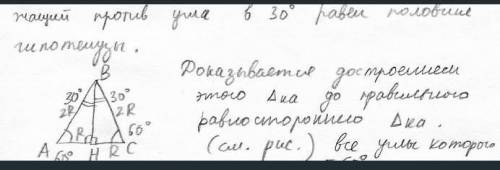 жащий против угла в 30° равен половине
гипотенузы.
B
Доказывается достроением
30° 30°
этого Δка до правильного
2R 2R
равностороннего Δка.
R 60°
(см. рис.) все углы которого
A H R C
60°